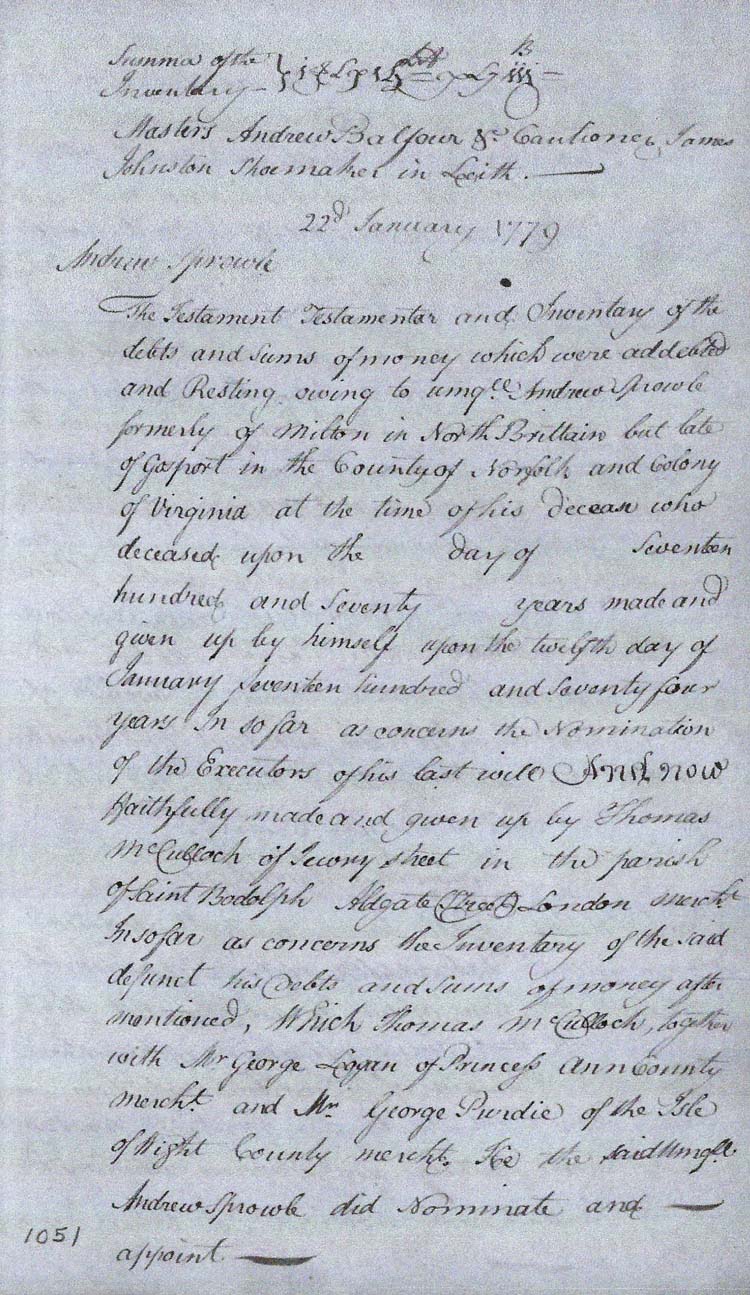 Summa of the
Inventary
Masters Andrew Balfour &c. Cautioner James
Johnston Shoemaker in Leith. —
22d January 1779
Andrew Sprowle
The Testament Testamentar and Inventary of the
debts and sums of money which were addebted
and Resting owing to umqll. Andrew Sprowle
formerly of Milton in North Brittain but late
of Gosport in the County of Norfolk and Colony
of Virginia at the time of his decease who
deceased upon the day of Seventeen
hundred and Seventy years made and
given up by himself upon the twelfth day of
January Seventeen hundred and Seventy four
years In so far as concerns the Nomination
of the Executors of his last will And now
Faithfully made and given up by Thomas
McCulloch of Ivory street in the parish
of Saint Bodolph Aldgate (Street) London mercht.
In so far as concerns the Inventary of the said
defunct his Debts and sums of money after
mentioned, Which Thomas McCulloch, together
with Mr George Logan of Princess Ann County
mercht. and Mr. George Purdie of the Isle
of Wight County mercht. He the said Umqll.
Andrew Sprowle did Nominate and —
appoint —
1051